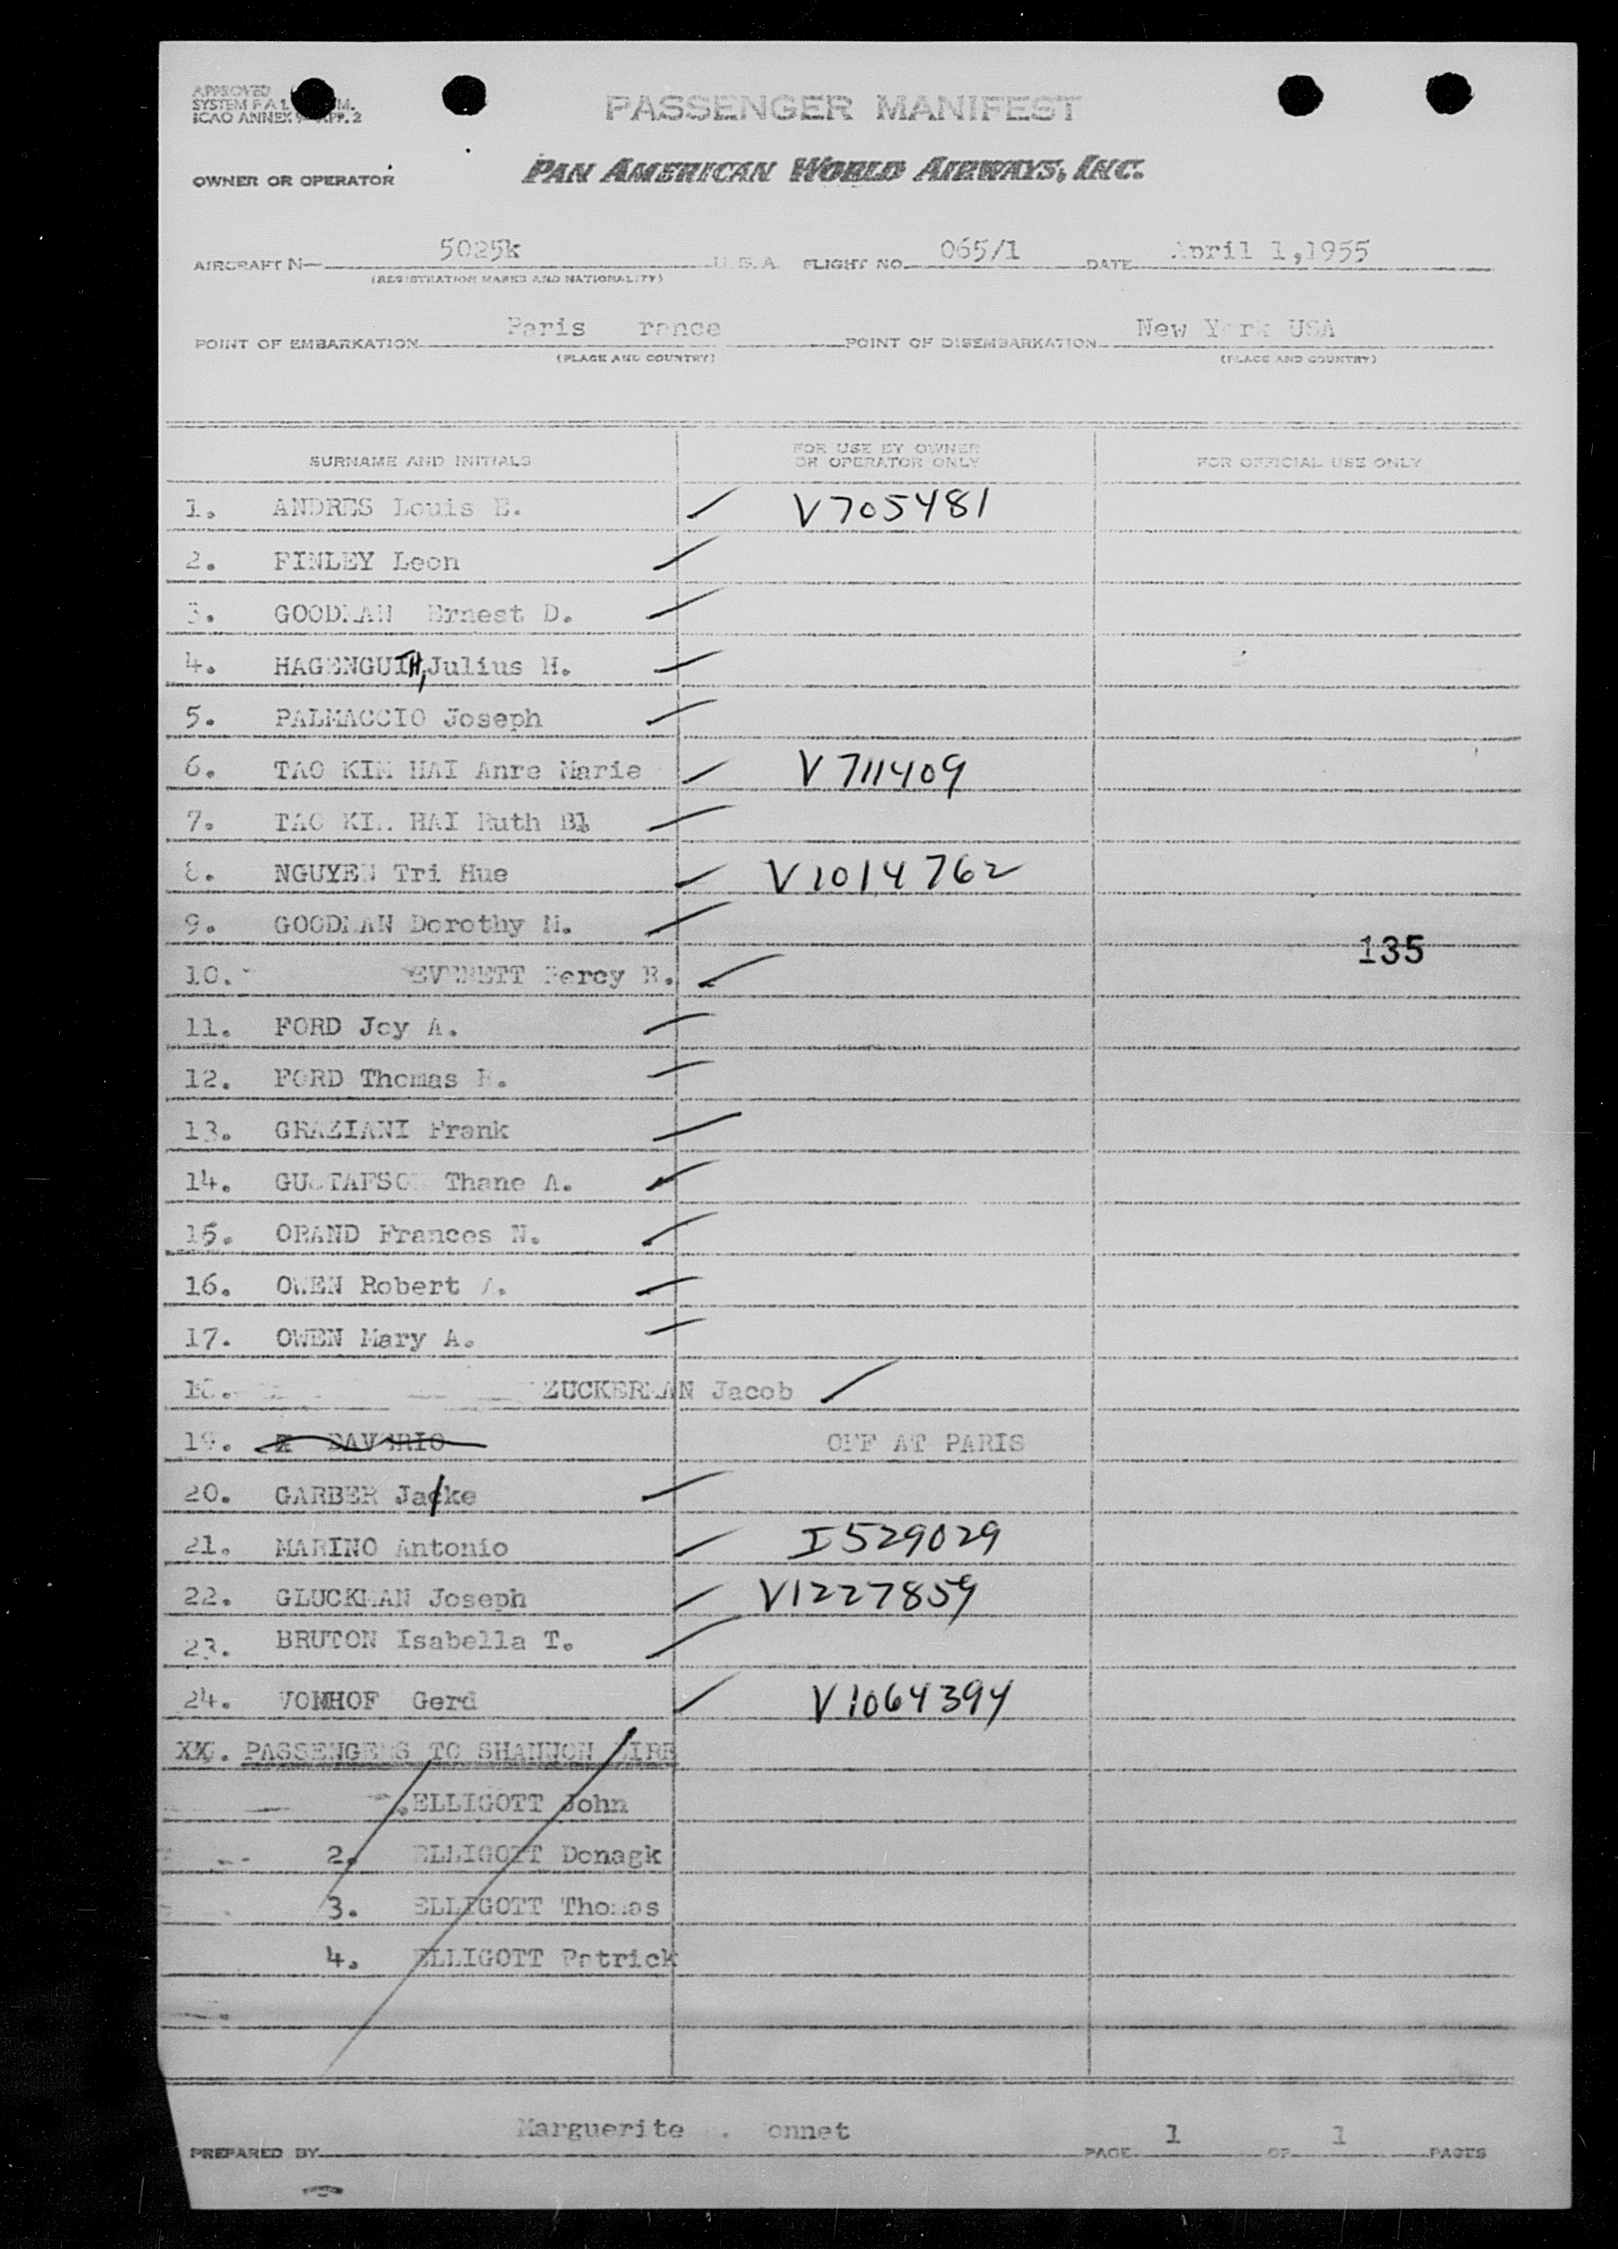 APPROVED
SYSTEM F.A.L. M.
ICAO ANNEX 9 APP. 2
PASSENGER MANIFEST
OWNER OR OPERATOR PAN AMERICAN WORLD AIRWAYS, INC.
AIRCRAFT N— 5025k U.S.A. FLIGHT NO. 065/1 DATE April 1,1955
(REGISTRATION MARKS AND NATIONALITY)
POINT OF EMBARKATION Paris rance POINT OF DISEMBARKATION New York USA
(PLACE AND COUNTRY) (PLACE AND COUNTRY)
SURNAME AND INITIALS FOR USE BY OWNER OR OPERATOR ONLY FOR OFFICIAL USE ONLY
1. ANDRES Louis E. ✓ V705481
2. FINLEY Leon ✓
3. GOODMAN Ernest D. ✓
4. HAGENGUTH, Julius H. ✓
5. PALMACCIO Joseph ✓
6. TAO KIM HAI Anre Marie ✓ V711409
7. TAO KIM HAI Ruth Bl ✓
8. NGUYEN Tri Hue ✓ V1014762
9. GOODMAN Dorothy M. ✓
135
10. EVERETT Percy R. ✓
11. FORD Joy A. ✓
12. FORD Thomas R. ✓
13. GRAZIANI Frank ✓
14. GUSTAFSON Thane A. ✓
15. ORAND Frances N. ✓
16. OWEN Robert A. ✓
17. OWEN Mary A. ✓
18. ZUCKERMAN Jacob ✓
19. SAVERIO OFF AT PARIS
20. GARBER Jacke ✓
21. MARINO Antonio ✓ I529029
22. GLUCKMAN Joseph ✓ V1227859
23. BRUTON Isabella T. ✓
24. VOMHOF Gerd ✓ V1064394
XX. PASSENGERS TO SHANNON EIRE
ELLIGOTT John
2. ELLIGOTT Donagk
3. ELLIGOTT Thomas
4. ELLIGOTT Patrick
PREPARED BY Marguerite . onnet PAGE 1 OF 1 PAGES